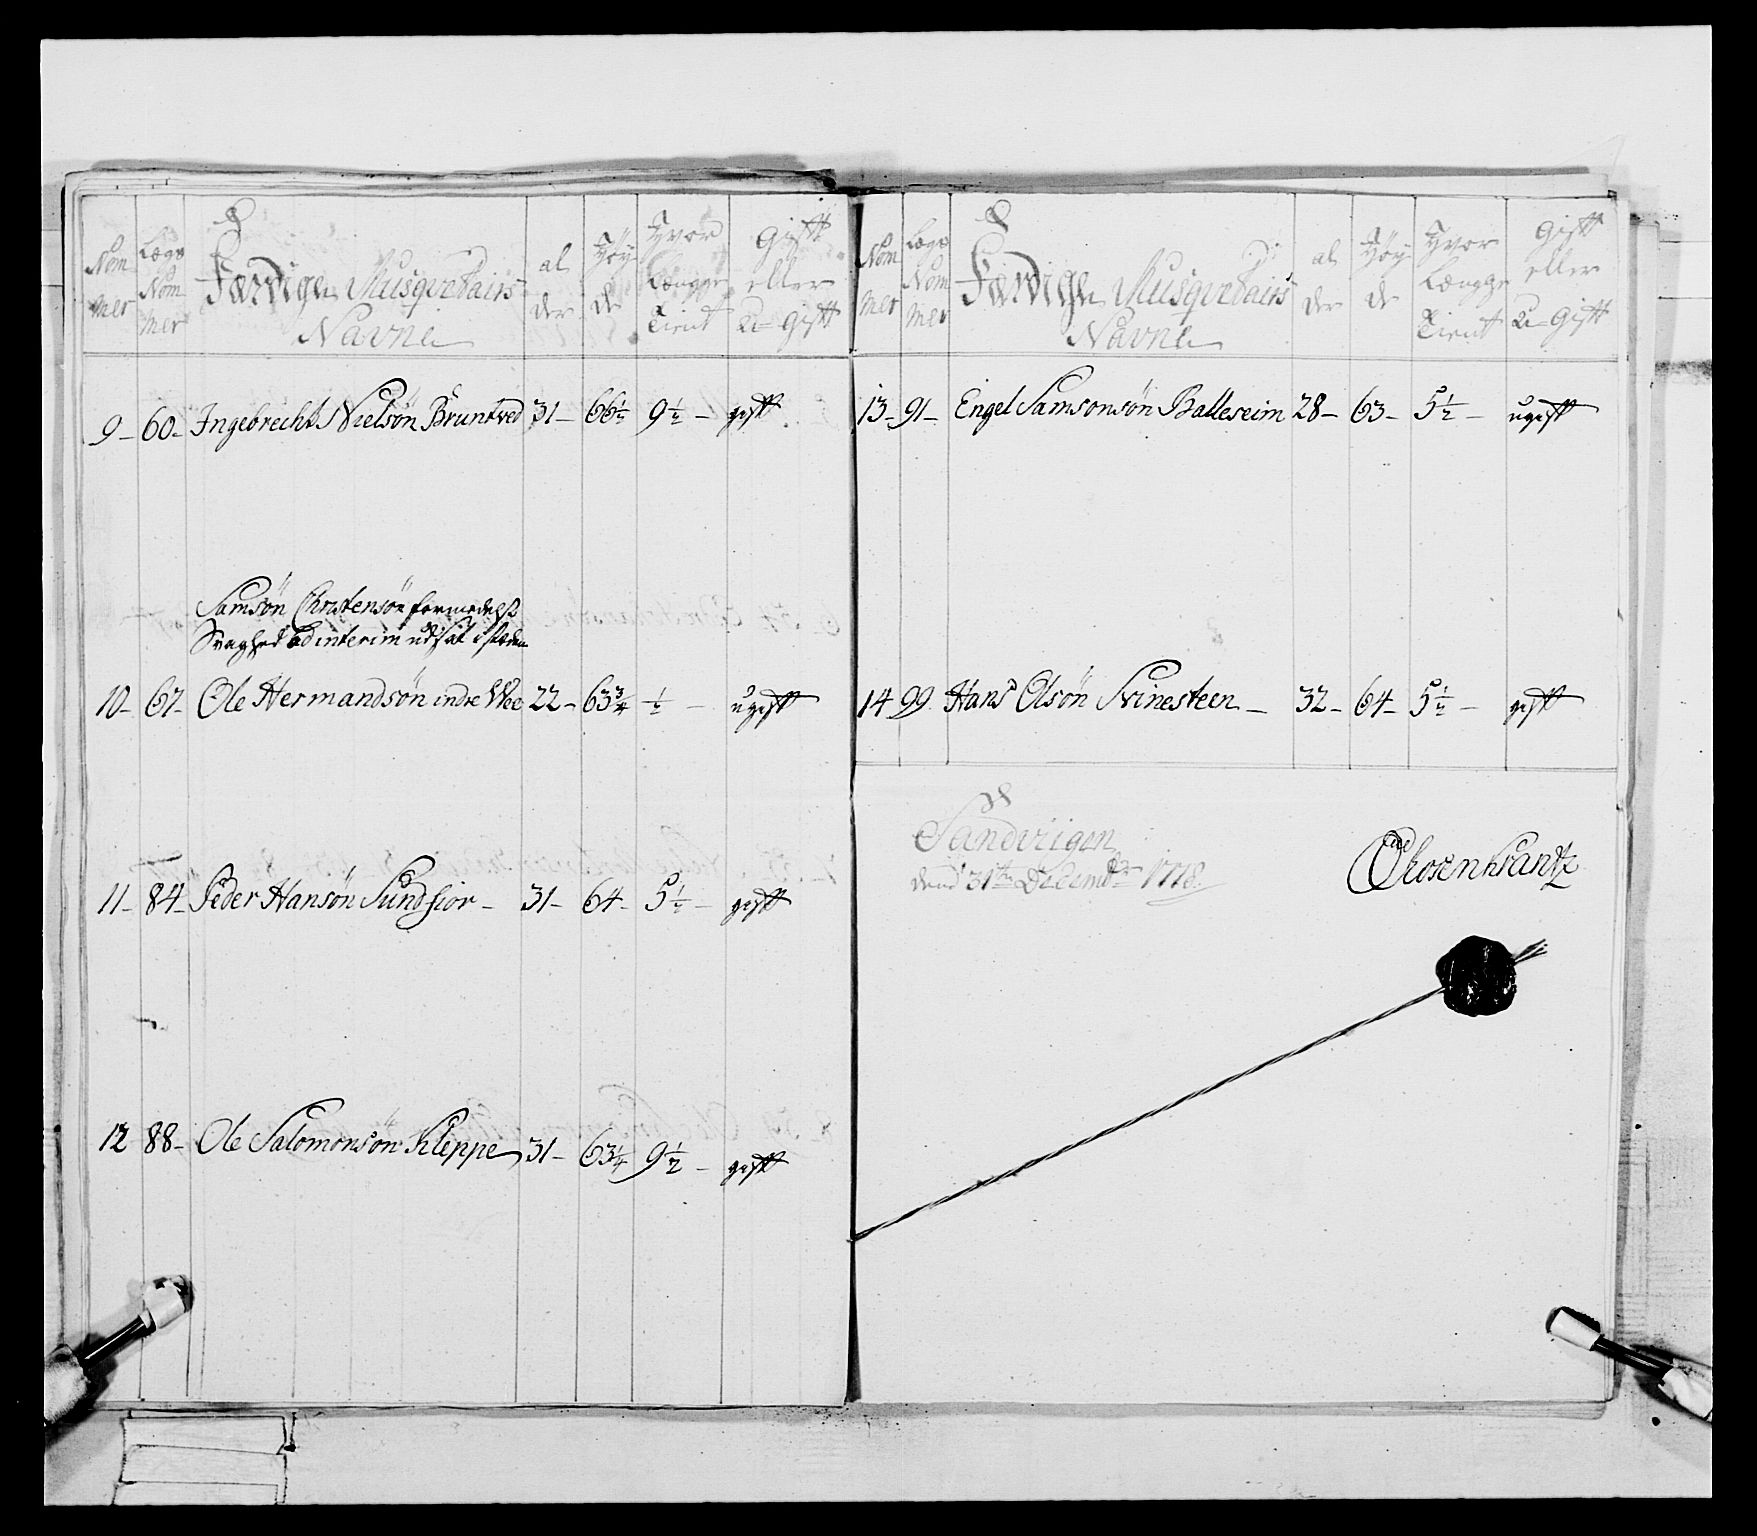 Nom mer | Lægs Nom mer | Færdige Musqvetairs Navne | al der | Høy de | Hvor Længge Tient | Gift eller U-Gift
9 – 60 – Ingebrecht Nielsøn Bruntved 31 – 66½ 9½ – gift
Samsøn Christensøn formedelst
Svaghed ad interim udsat i stæden
10 – 67 – Ole Hermandsøn indre Wee 22 – 63¾ ½ – ugift
11 – 84 – Peder Hansøn Sundfior – 31 – 64 – 5½ – gift
12 88 – Ole Salomonsøn Kleppe 31 – 63¼ 9½ – gift
Nom mer | Lægs Nom mer | Færdige Musqvetairs Navne | al der | Høy de | Hvor Længge Tient | Gift eller U-Gift
13 – 91 – Engel Samsonsøn Balleseim 28 – 63 – 5½ – ugift
14 99 Hans Olsøn Svinesteen – 32 – 64 – 5½ – gift
Sandviigen
dend 31te Decembr 1778.
Rosenkrantz